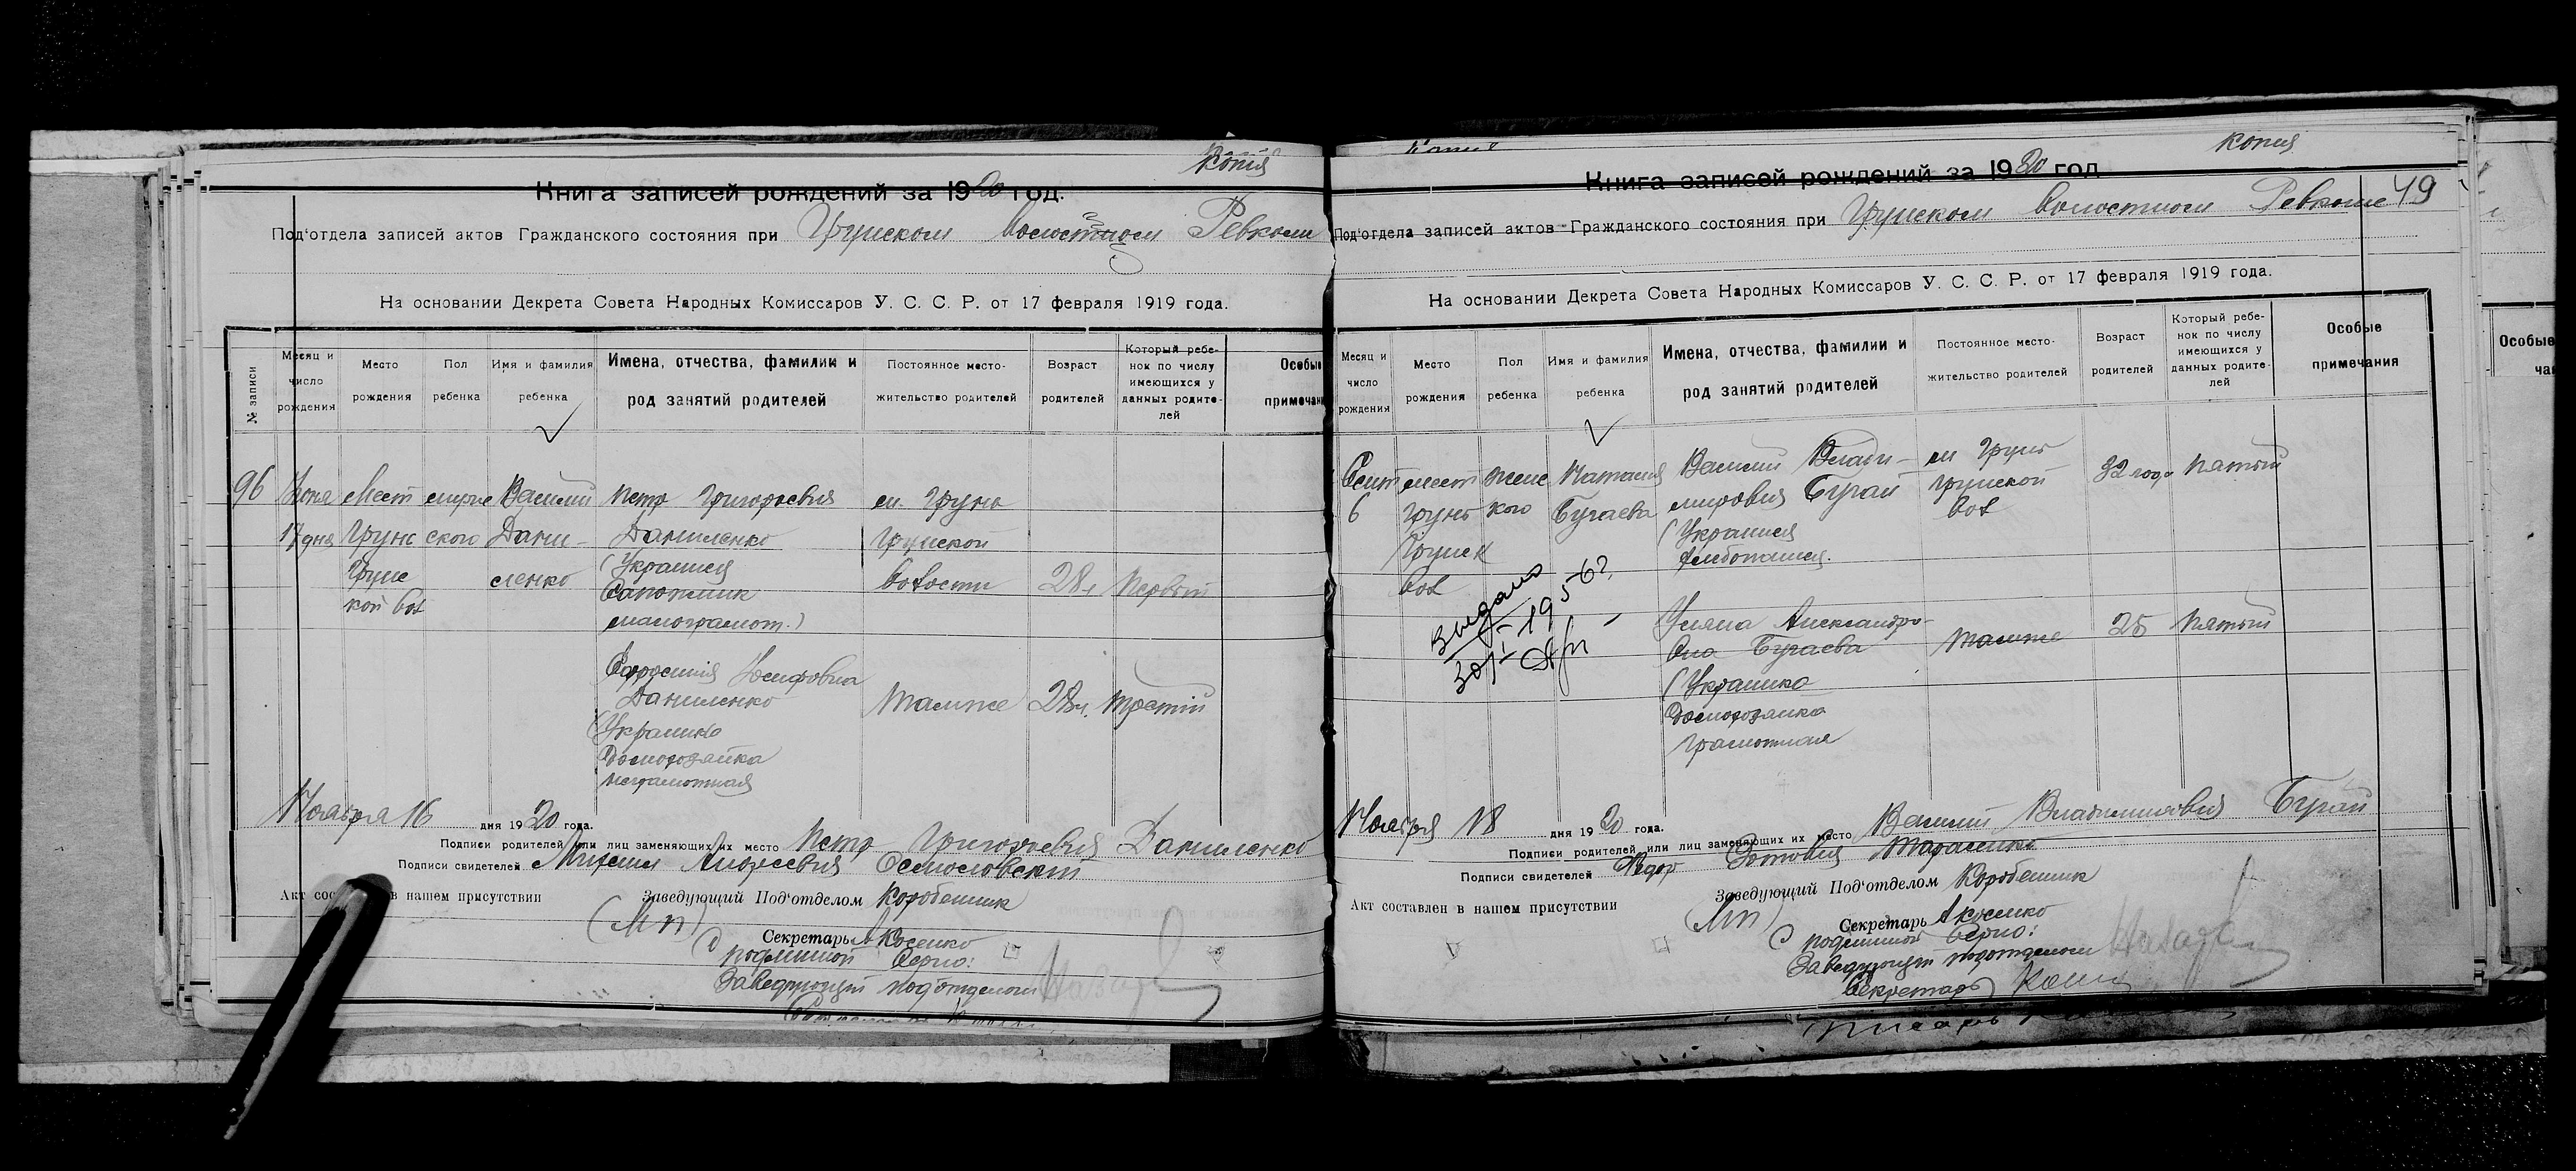 Копия
Книга записей рождений за 1920 год.
Под'отдела записей актов Гражданского состояния при Грунском Волостном Ревкоме
На основании Декрета Совета Народных Комиссаров У. С. С. Р. от 17 февраля 1919 года.
№ записи
Месяц и число рождения
Место рождения
Пол ребенка
Имя и фамилия ребенка
Имена, отчества, фамилии и род занятий родителей
Постоянное место-жительство родителей
Возраст родителей
Который ребе-нок по числу имеющихся у данных родите-лей
Особые примечан
96 Июня Мест мужс Василий Петр Григорьевич м. Грунь
17 дня Грунь ского Дани- Даниленко Грунской
Грунс ленко (Украинец Волости 28 л Первый
кой вол Сапожник
малограмот.)
Ефросиния Иосифовна
Даниленко Тамже 28 л. Третий
(Украинка
Домохозяйка
неграмотная
Ноября 16 дня 1920 года.
Подписи родителей или лиц заменяющих их место Петр Григорьевич Даниленко
Подписи свидетелей Михаил Андреевич
Акт сос в нашем присутствии
Заведующий Под'отделом Коробейник
(МП)
Секретарь А Косенко
С подлинной верно:
Заведующий подотделом
Копия
Книга записей рождений за 1920 год
49
Под'отдела записей актов Гражданского состояния при Грунском Волостном Ревкоме
На основании Декрета Совета Народных Комиссаров У. С. С. Р. от 17 февраля 1919 года.
Месяц и число рождения
Место рождения
Пол ребенка
Имя и фамилия ребенка
Имена, отчества, фамилии и род занятий родителей
Постоянное место-жительство родителей
Возраст родителей
Который ребе-нок по числу имеющихся у данных родите-лей
Особые примечания
Сент мест женс Наталия Василий Влади- м Грунь 32 года Пятый
6 Грунь кого Бугаева мирович Бугай Грунской
Грунск (Украинец Вол
Вол хлебопашец.
Выдано
Уляна Александро-
вна Бугаева Тамже 25 Пятый
(Украинка
Домохозяйка
грамотная
Ноября 18 дня 1920 года.
Подписи родителей или лиц заменяющих их место Василий Владимирович Бугай
Подписи свидетелей Федор
Акт составлен в нашем присутствии
Заведующий Под'отделом Коробейник
(МП)
Секретарь А Косенко
С подлинной верно:
Заведующий подотделом
Секретарь
Особые